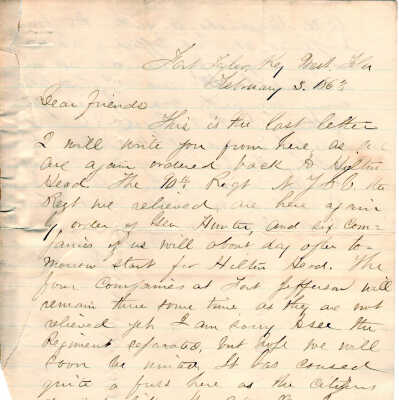 Fort Taylor, Key West, Fla
February 3. 1863
Dear friends
This is the last letter
I will write you from here, as we
are again ordered back to Hilton
Head. The 90th Regt N.Y.S.V. the
Regt we relieved, are here again
by order of Gen Hunter, and six Com-
panies of us will about day after to-
morrow start for Hilton Head. The
four Companies at Fort Jefferson will
remain there some time, as they are not
relieved yet. I am sorry to see the
Regiment separated, but hope we will
soon be united. It has caused
quite a fuss here as the citizens